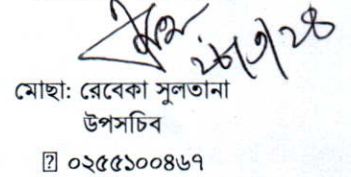 মোছা: রেবেকা সুলতানা
উপসচিব
০২৫৫১০০৪৬৭